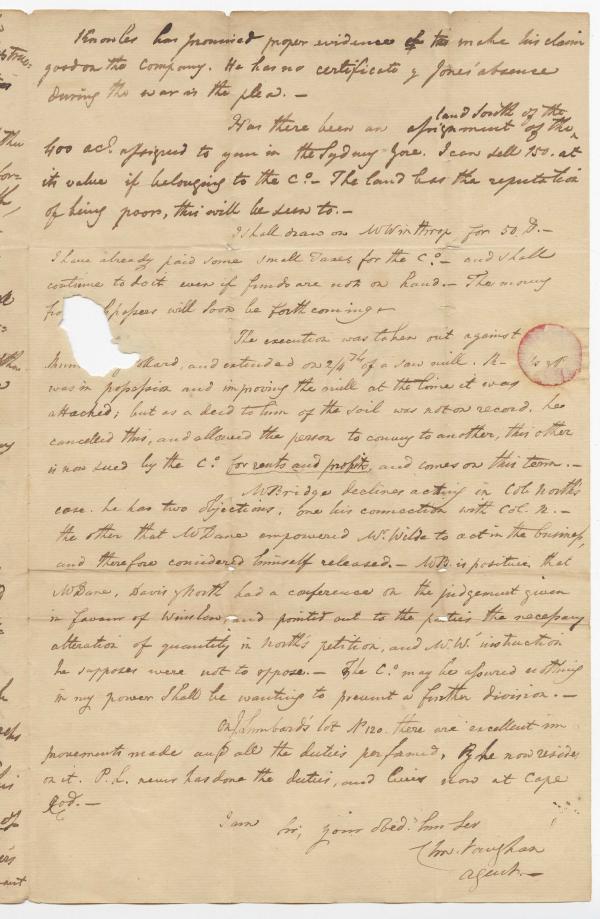 Knowles has promised proper evidence to make his claim
good on the Company. He has no certificate & Jones' absence
during the war is the plea. —
land South of the
Has there been an assignment of the
400 acs. assigned to you in the Sydney Gore. I can sell 150. at
its value if belonging to the Co. — The land has the reputation
of being poor, this will be seen to. —
I shall draw on Mr Winthrop for 50 D. —
I have already paid some small Taxes for the Co. — and shall
continue to do it even if funds are not on hand. — The money
passers will soon be forthcoming
The execution was taken out against
and extended on 2/4ths of a saw mill.
was in possession and improving the mill at the time it was
attached; but as a deed to him of the soil was not on record, he
cancelled this, and allowed the person to convey to another, this other
is now sued by the Co. for rents and profits, and comes on this term. —
Mr Bridge declines acting in Col. North's
case. he has two objections, one his connection with Col. N. —
the other that Mr Dane empowered Mr. Wilde to act in the business,
and therefore considered himself released. — Mr B. is positive, that
Mr Dane, Davis & North had a conference on the judgement given
in favour of Winslow, and pointed out to the parties the necessary
alteration of quantity in North's petition, and Mr. W.' instruction
he supposes were not to oppose. — The Co. may be assured nothing
in my power shall be wanting to prevent a further division. —
On J. Lumbard's lot No 120. there are excellent im
provements made and all the duties performed, & he now resides
on it. P. L. never has done the duties, and lives now at Cape
Cod. —
I am Sir, your obed. hum Ser
Chs. Vaughan
agent. —